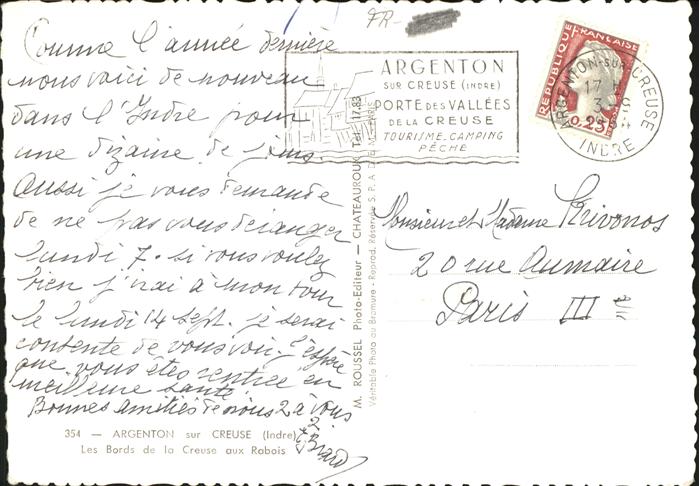 FR-
Comme l'année dernière
nous voici de nouveau
dans l'Indre pour
une dizaine de jours.
Aussi je vous demande
de ne pas vous déranger
lundi 7. si vous voulez
bien j'irai à mon tour
le lundi 14 sept. je serai
contente de vous voir. J'espère
que vous êtes rentrée en
meilleure santé.
Bonnes amitiés de nous 2 à vous
2.
354 — ARGENTON sur CREUSE (Indre)
Les Bords de la Creuse aux Rabois
M. ROUSSEL Photo-Editeur — CHATEAUROUX Tél. 17.83
Véritable Photo au Bromure - Reprod. Réservée S.P.A.D.E.M. PARIS
ARGENTON
SUR CREUSE (INDRE)
PORTE DES VALLÉES
DE LA CREUSE
TOURISME. CAMPING
PÊCHE
REPUBLIQUE FRANÇAISE
0,25
ARGENTON-SUR-CREUSE
17
3 - 9
INDRE
Monsieur et Madame Krivonos
20 rue Aumaire
Paris III e